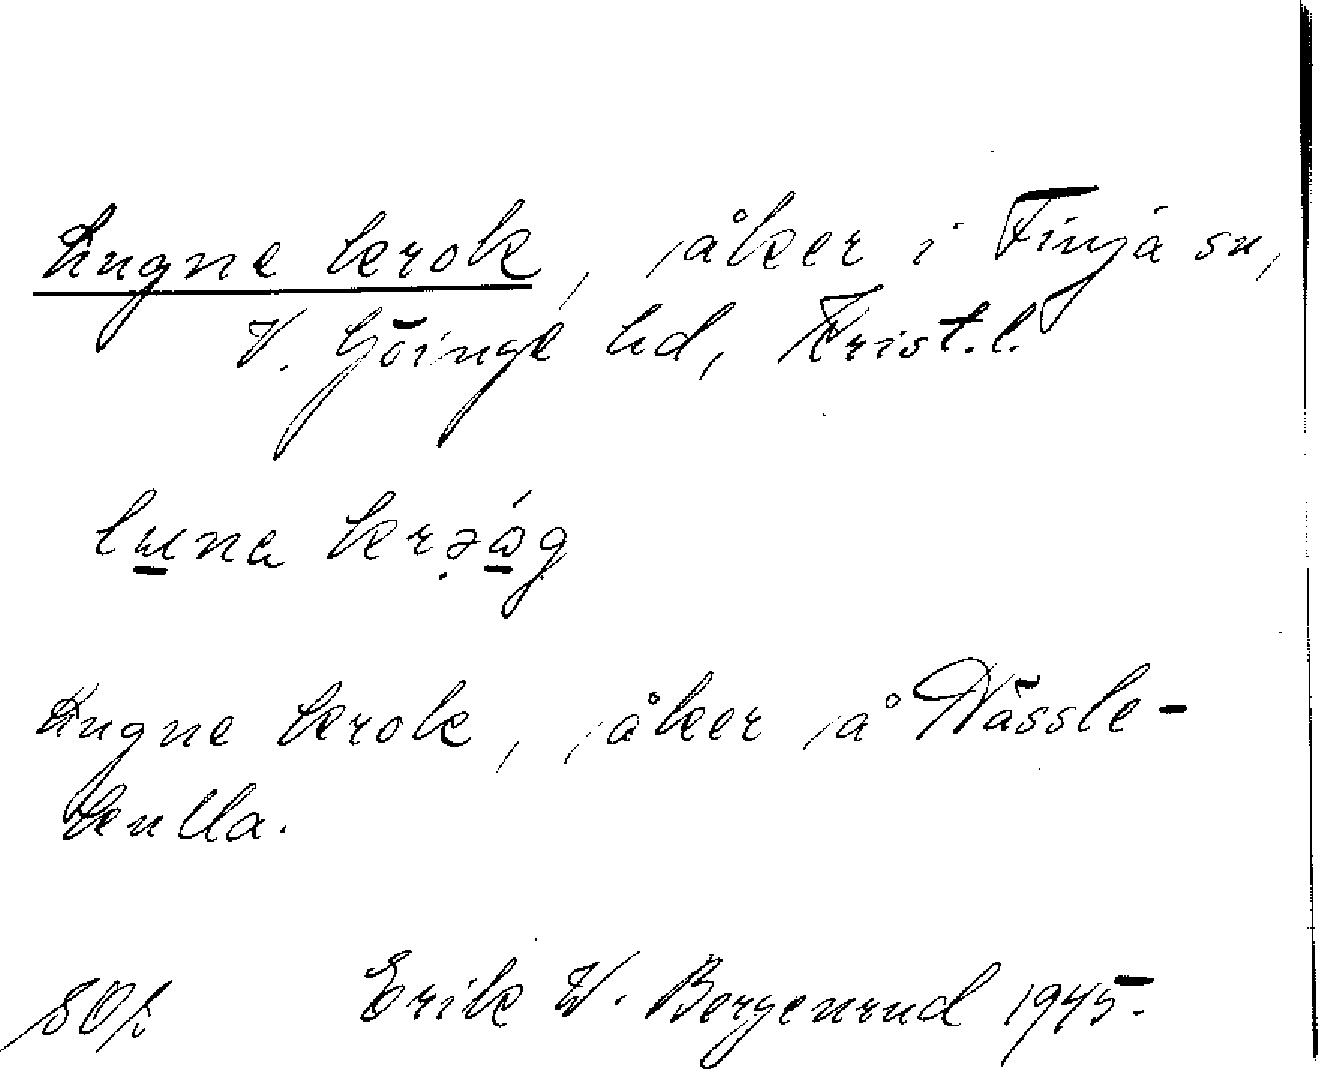 Lugne krok, åker i Finja sn,
V. Göinge hd, Krist.l.
Lugne krok, åker å Nässle-
kulla.
Erik W. Borgenrud 1945.